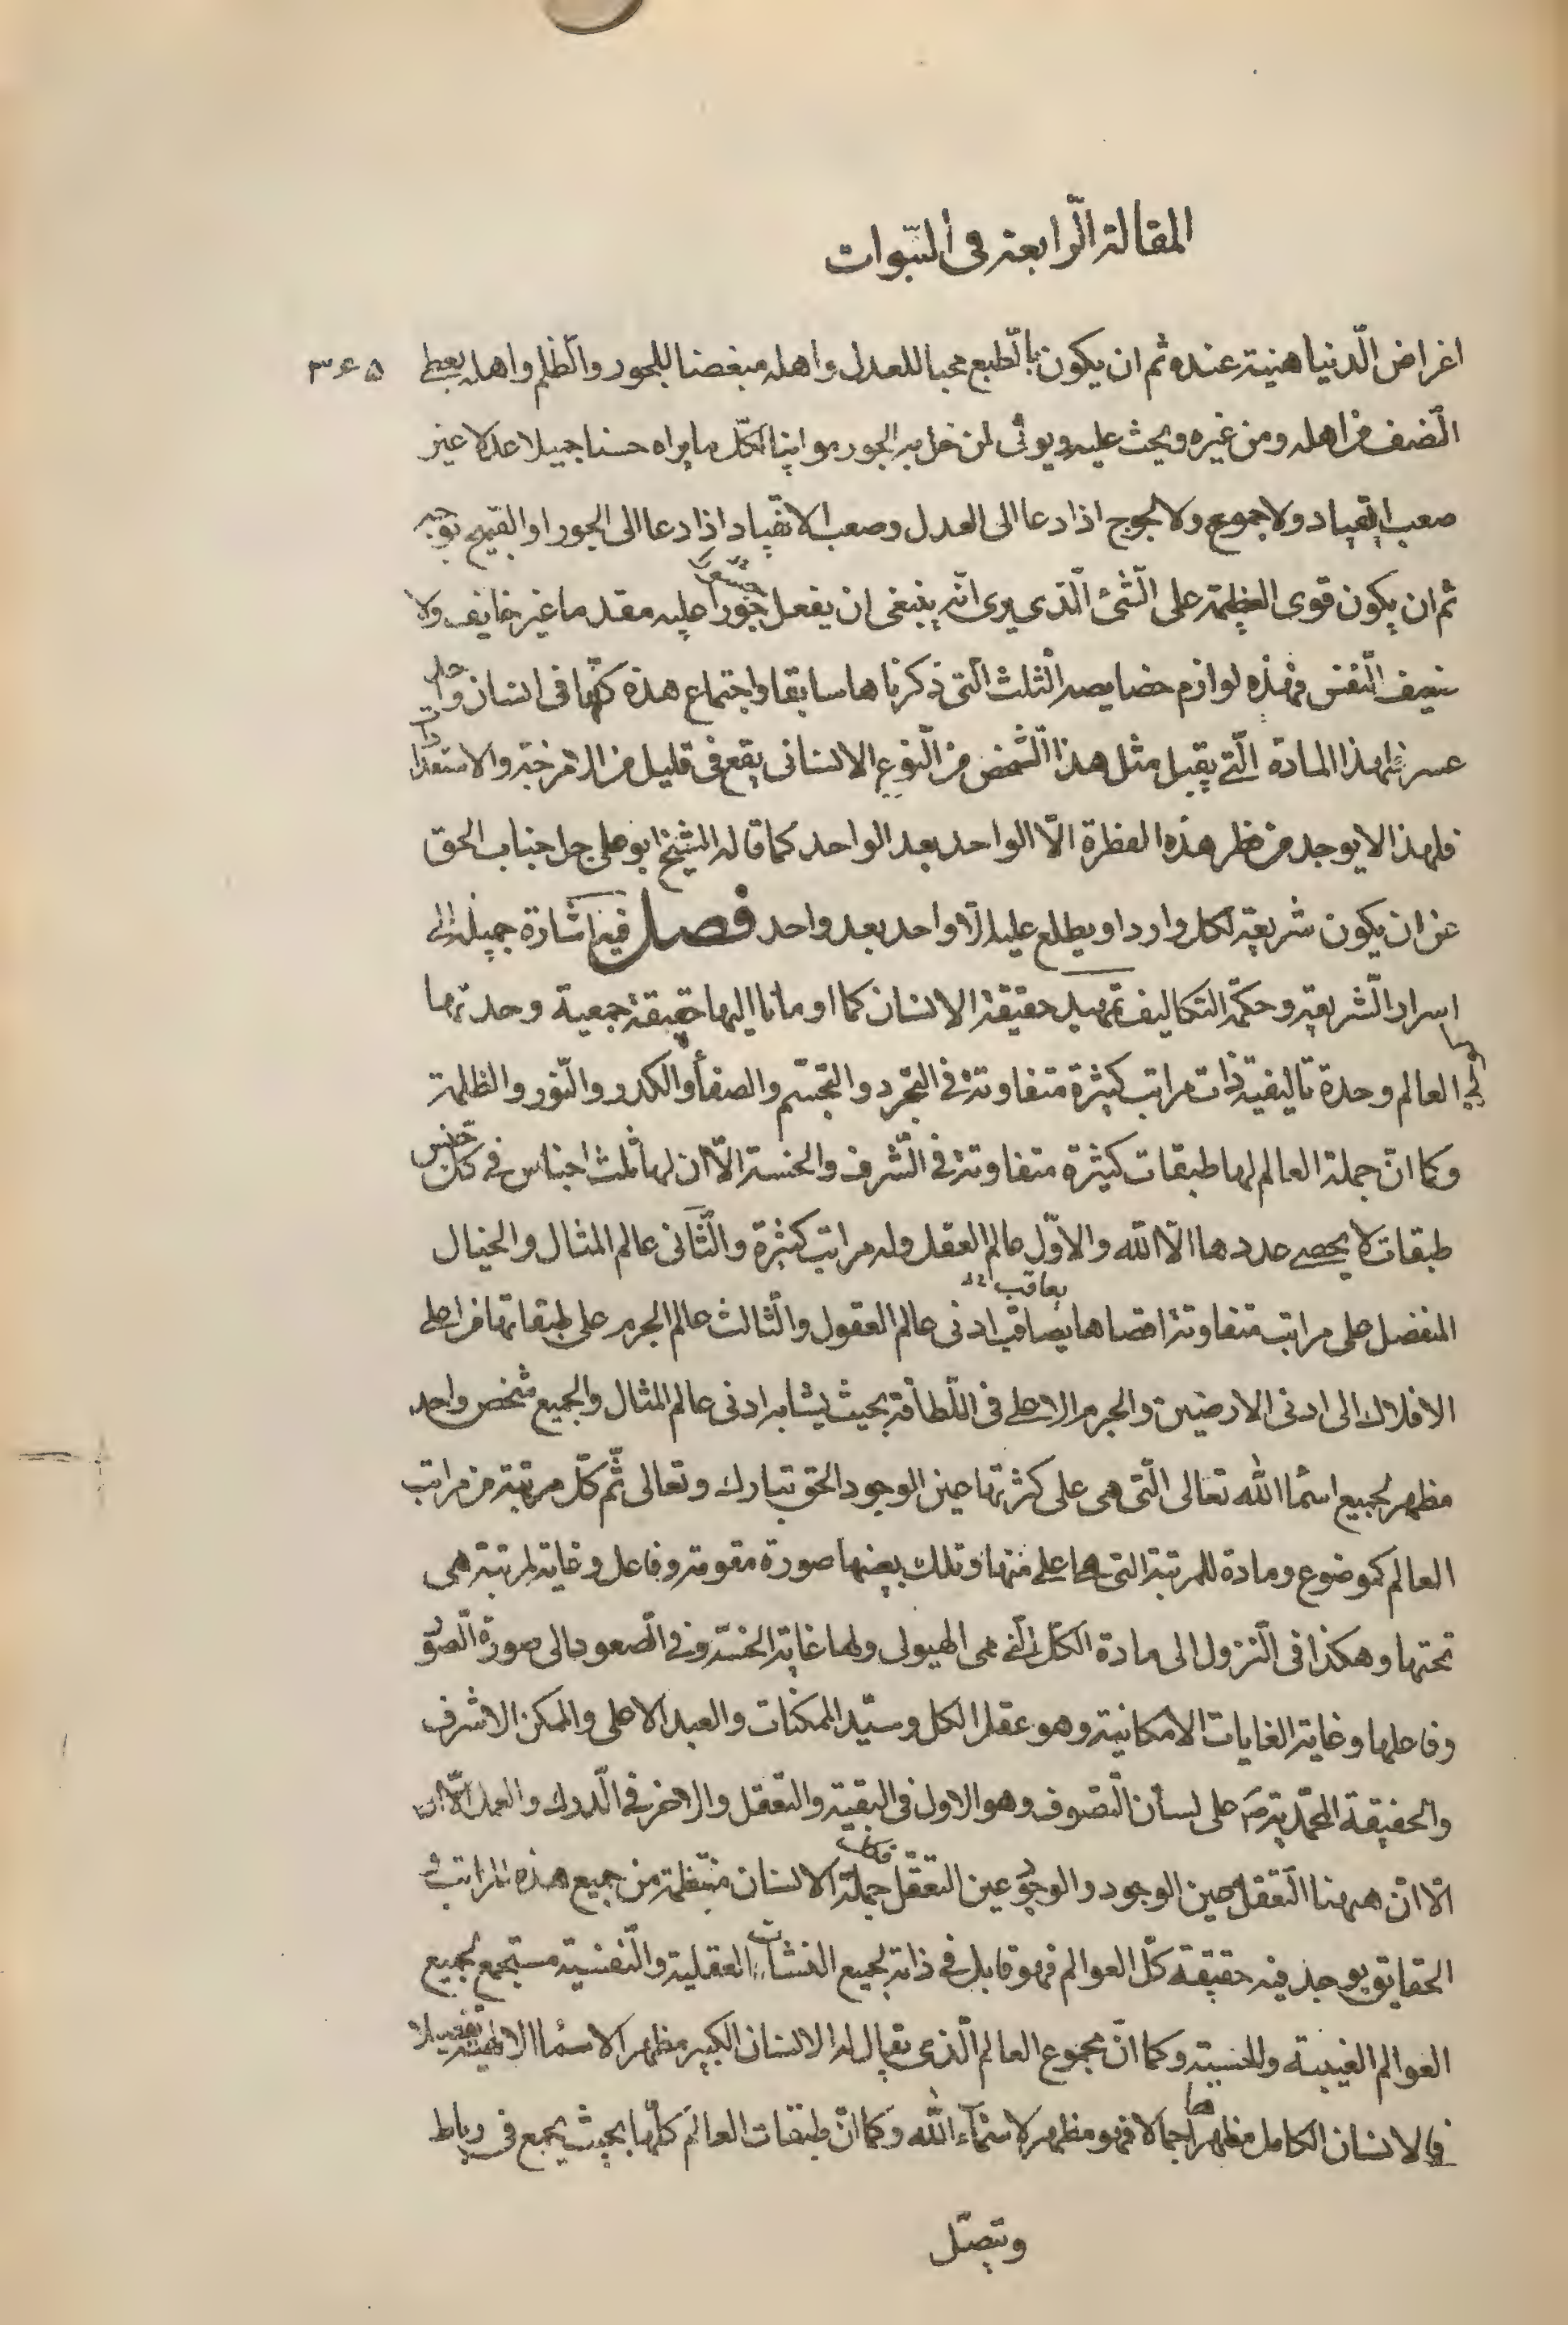 المقالة الرّابعة فى النبّوات
اغراض الدّنيا هينة عنده ثم ان يكون بالطّبع محبا للعدل واهله مبغضا للجور والظّلم واهله يعطى ٣۶۵
النّصف من اهله ومن غيره ويحث عليه ويوتى لمن حل به الجور مواتيا لكلّ ما يراه حسنا جميلا عدلا غير
صعب القياد ولا جموح ولا لجوج اذا دعا الى العدل وصعب الانقياد اذا دعا الى الجور او القبيح
ثم ان يكون قوى العظيمة على الشّئ الّذى يرى انّه ينبغى ان يفعل جسورا عليه مقدما غير خايف ولا
ضعيف النّفس فهذه لوازم خصايصه الثّلث الّتى ذكرناها سابقا واجتماع هذه كلّها فى انسان واحد
عسر لهذا المادة الّتى يقبل مثل هذا الشّخص من النّوع الانسانى يقع فى قليل من الامزجة والاستعدادات
فلهذا لا يوجد من فطر هذه الفطرة الّا الواحد بعد الواحد كما قاله الشيخ ابو على جل جناب الحق
عن ان يكون شريعة لكل وارد او يطلع عليه الّا واحد بعد واحد فصل فيه اشارة جميلة الى
اسرار الشّريعة وحكمة التكاليف تمهيد حقيقة الانسان كما اومانا اليها حقيقة جمعية وحدتها
كوحدة العالم وحدة تاليفية ذات مراتب كثيرة متفاوتة فى التجرد والتجسّم والصفأ والكدر والنّور والظلمة
وكما انّ جملة العالم لها طبقات كثيرة متفاوتة فى الشّرف والخسة الّا ان لها ثلث اجناس فى كلّ جنس
طبقات لا يحصى عددها الّا اللّه والاوّل عالم العقل وله مراتب كثيرة والثّانى عالم المثال والخيال
المنفصل على مراتب متفاوتة اقصاها يصاقب ادنى عالم العقول والثّالث عالم الجرم على طبقاتها من اعلى
الافلاك الى ادنى الارضين والجرم الاعلى فى اللّطافة بحيث يشابه ادنى عالم المثال والجميع شخص واحد
مظهر لجميع اسمأ اللّه تعالى الّتى هى على كثرتها عين الوجود الحق تبارك وتعالى ثمّ كلّ مرتبة من مراتب
العالم كموضوع ومادة للمرتبة التى هى اعلى منها وتلك بعينها صورة مقومة وفاعل وغاية لمرتبة هى
تحتها وهكذا فى النّزول الى مادة الكلّ الّتى هى الهيولى ولها غاية الخسّة وفى الصّعود الى صورة الصّور
وفاعلها وغاية الغايات الامكانية وهو عقل الكل وسيّد الممكنات والعبد الاعلى والممكن الاشرف
والحقيقة المحمّدية ص على لسان التّصوف وهو الاول فى البقية والتّعقل والاخر فى الدّرك والعمل
الّا انّ ههنا التّعقل عين الوجود والوجود عين التّعقّل فكانت جملة الانسان منتظمة من جميع هذه المراتب
الحقايق يوجد فيه حقيقة كلّ العوالم فهو قابل فى ذاته لجميع النشآت العقلية والنّفسية مستجمع لجميع
العوالم الغيبية والحسية وكما انّ مجموع العالم الّذى يقال له الانسان الكبير مظهر الاسمأ الالهية تفصيلا
فالانسان الكامل مظهرها اجمالا فهو مظهر لاسمآء اللّه وكما انّ طبقات العالم كلّها بحيث يجمع فى رباط
وتتصّل